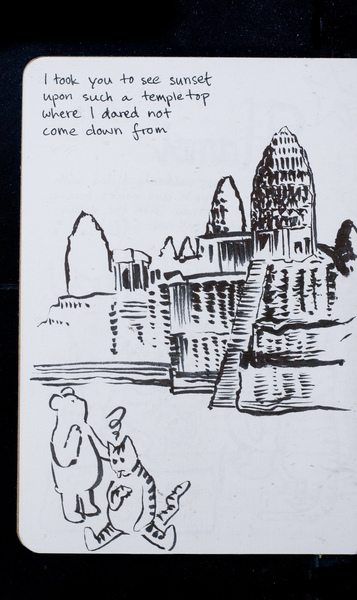 I took you to see sunset
upon such a temple top
where I dared not
come down from